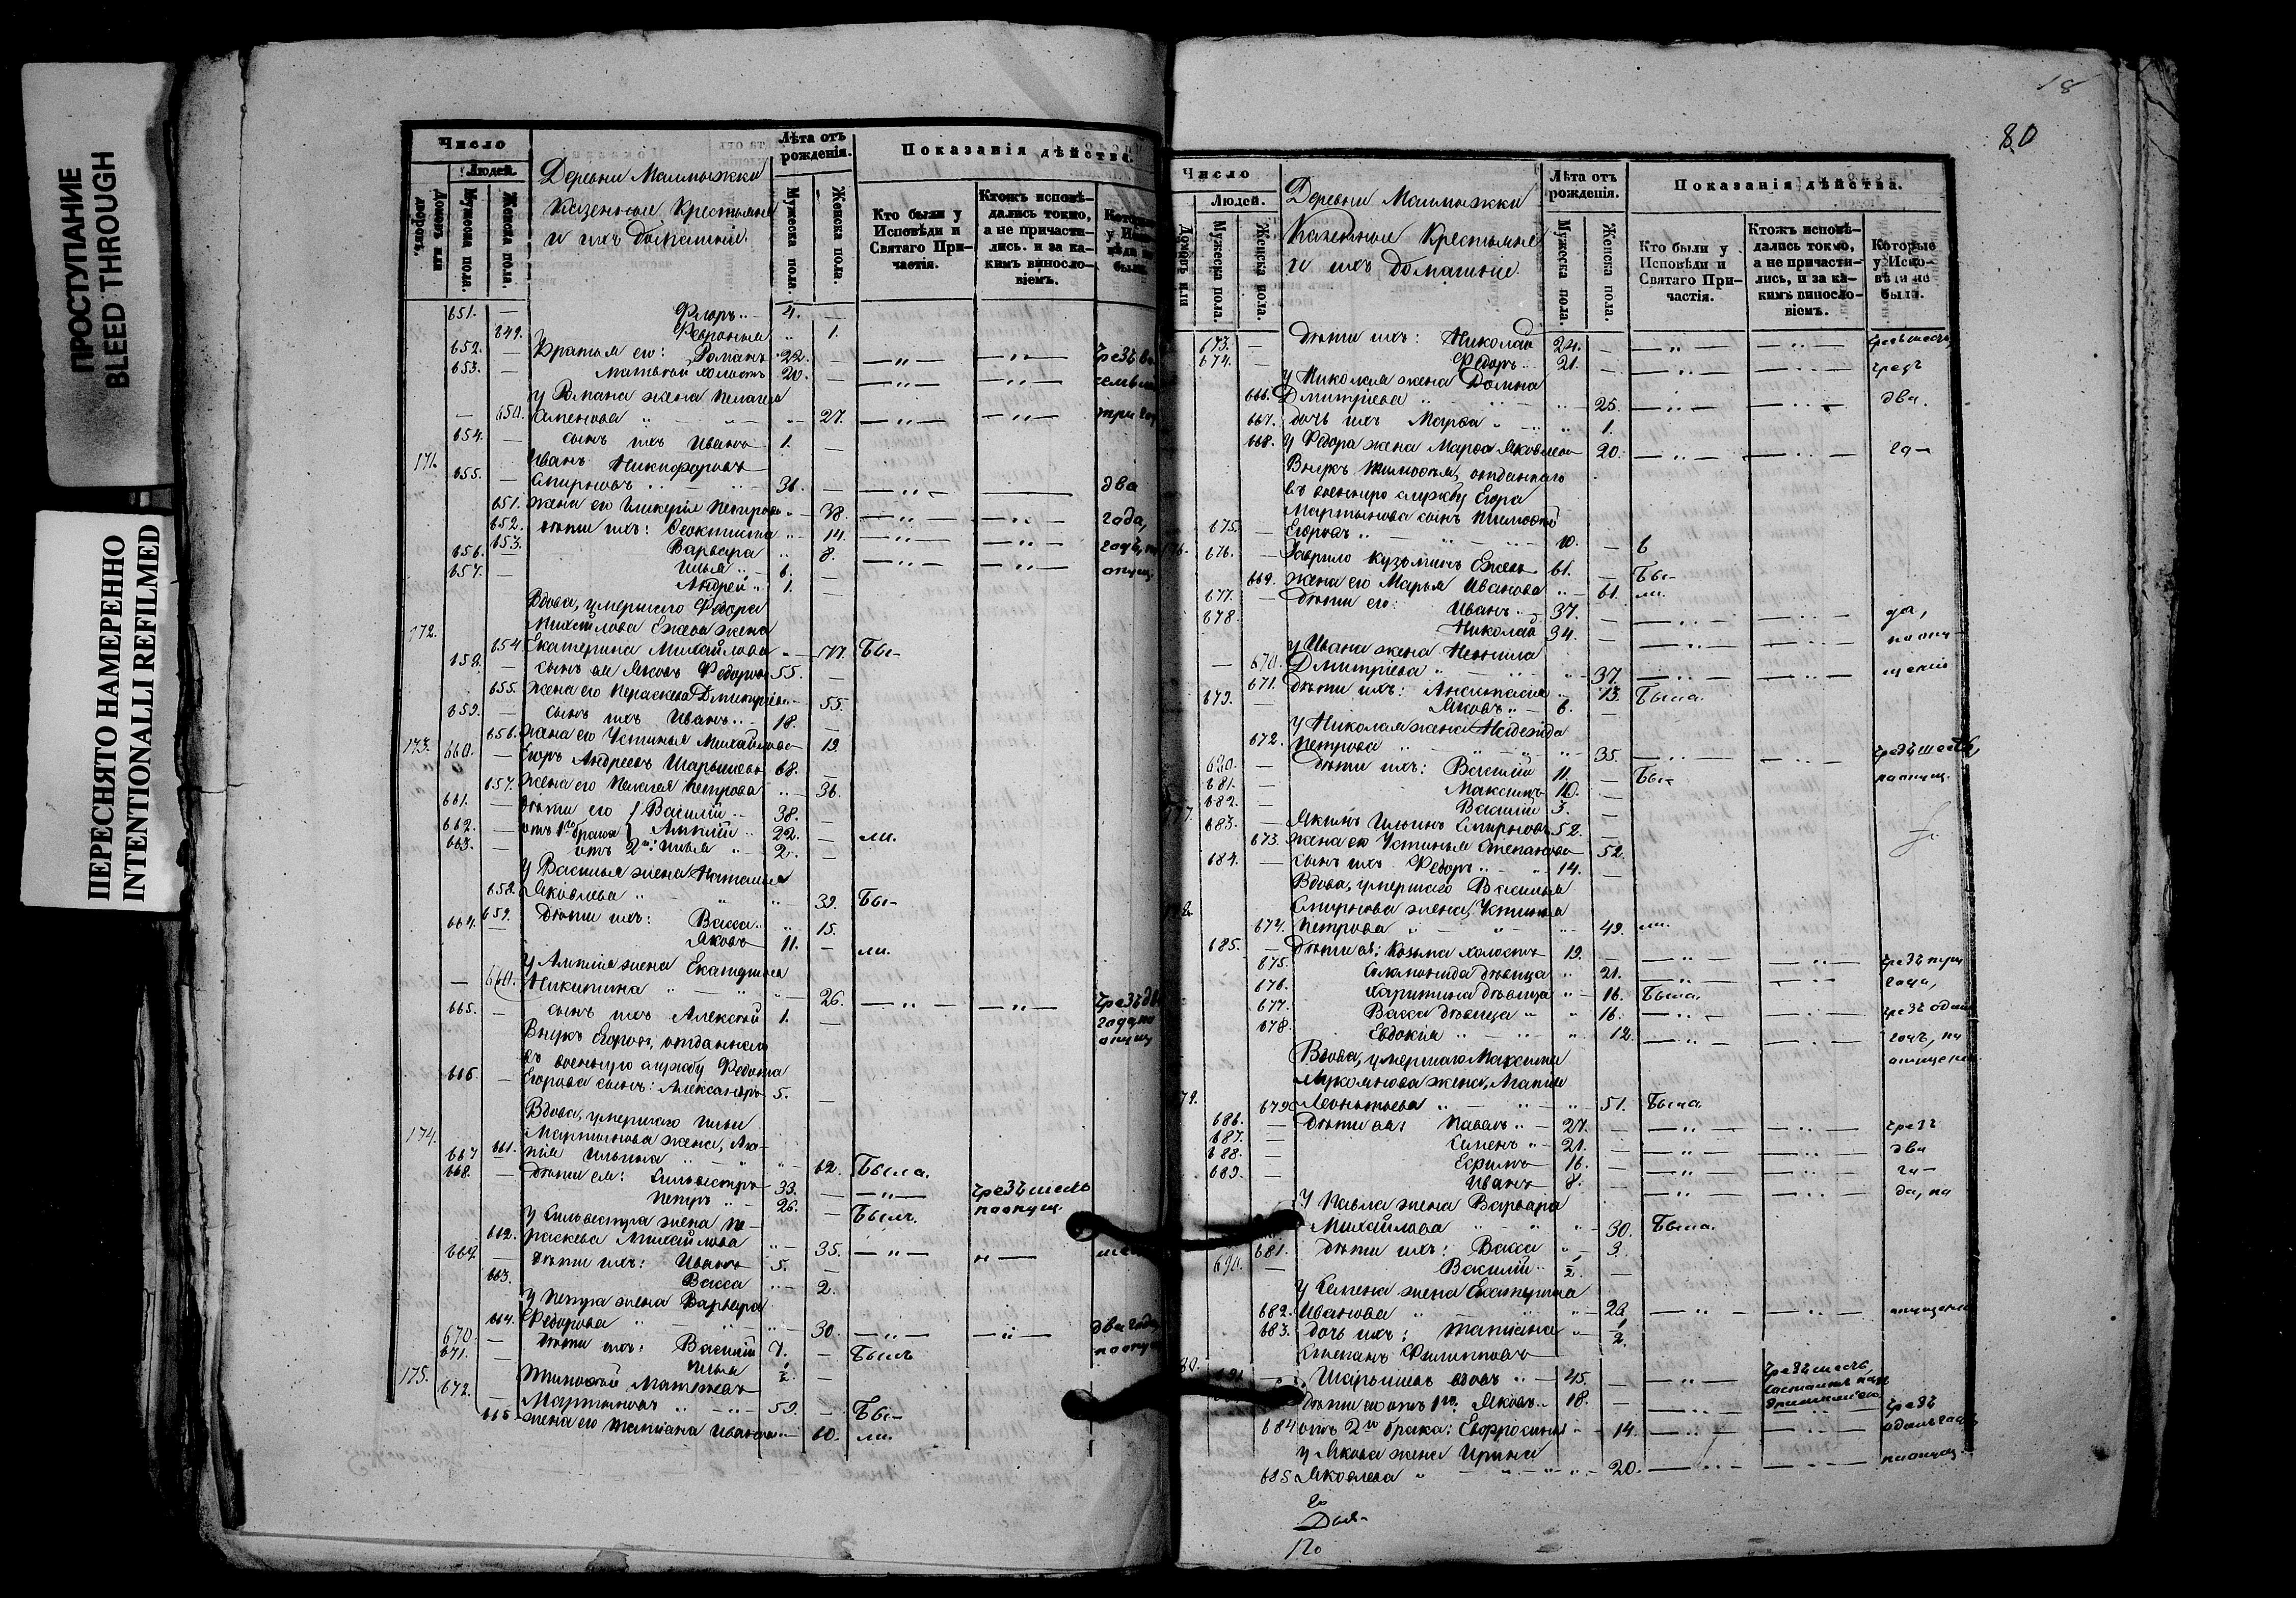 ПРОСТУПАНИЕ
BLEED THROUGH
ПЕРЕСНЯТО НАМЕРЕННО
INTENTIONALLI REFILMED
Число
Людей.
Домовъ или дворовъ.
Мужеска пола.
Женска пола.
Деревни
Казенные Крестьяне
и ихъ домашніе.
Лѣта отъ рожденія.
Мужеска пола.
Женска пола.
Показанія дѣйства.
Кто были у Исповѣди и Святаго Причастія.
Ктожъ исповѣдались токмо, а не причастились. и за какимъ винословіемъ.
651. — Флоръ 4. —
649. Февронья 1.
652. — Братья его: Романъ 22. —
653. — Матвей холостъ 20. —
у Романа жена Пелагея
— 650. Семенова 27. три
654. — сынъ ихъ Иванъ 1. —
171. Иванъ Никифоровъ
655. — Смирновъ — два
651. жена его Гликерія Петрова 38. года,
652. дѣти ихъ: Феоктиста 14.
653. Варвара 8.
656. — Илья 6. —
657. — Андрей 1. —
Вдова, умершаго Федора
172. Михайлова Ежева жена
654. Екатерина Михайлова 77. Бы-
658. — сынъ ея Яковъ Федоровъ 55. —
655. жена его Параскева Дмитріева 55.
659. — сынъ ихъ Иванъ 18. —
656. жена его Устинья Михайлова 19.
173. 660. — Егоръ Андреевъ Шарышевъ 68. —
657. жена его Пелагея Петрова 36.
661. — дѣти его Василій 38. —
662. — отъ 1го брака Амплій 22. — ли.
663. — отъ 2го: Илья 2. —
у Василья жена Наталья
658. Яковлева 39. Бы-
659. дѣти ихъ: Васса 15.
664. — Яковъ 11. — ли.
у Амплія жена Екатерина
— 660. Никитина 26. чрезъ
665. — сынъ ихъ Алексѣй 1. —
Внукъ Егоровъ, отданнаго
въ военную службу Федота
666. — Егорова сынъ: Александръ 5. —
Вдова, умершаго Ильи
174. Мартынова жена, Ага-
661. пія Ильина 62. Была.
667. дѣти ея: Сильвестръ 33. — чрезъ
668. Петръ 26. — Былъ.
у Сильвестра жена Па-
662. раскева Михайлова 35.
669. — дѣти ихъ: Иванъ 5. —
663. Васса 2.
у Петра жена Варвара
664. Федорова 30. два года,
670. — дѣти ихъ: Василій 7. — Былъ
671. — Илья ½ —
175. Тимофей Матвѣевъ
672. — Мартыновъ 59. — Бы-
665. жена его Татіана Иванова 60. ли.
18
80
Число
Людей.
Домовъ или
Мужеска пола.
Женска пола.
Деревни
Казенные Крестьяне
и ихъ домашніе.
Лѣта отъ рожденія.
Мужеска пола.
Женска пола.
Показанія дѣйства.
Кто были у Исповѣди и Святаго Причастія.
Ктожъ исповѣдались токмо, а не причастились, и за какимъ винословіемъ.
Которые у Исповѣди не были.
673. — дѣти ихъ: Николай 24. —
674. — Федоръ 21. — чрезъ
у Николая жена Домна
666. Дмитріева 25. два
667. дочь ихъ Марѳа 1.
668. у Федора жена Марѳа Яковлева 20. го-
Внукъ Тимофея, отданнаго
въ военную службу Егора
Мартынова сынъ Тимофей
675. — Егоровъ 10. —
176. 676. — Гаврило Кузьминъ Ежевъ 61. — Бы-
669. жена его Марья Иванова 61. ли.
677. — дѣти его: Иванъ 37. — да,
678. Николай 34. —
у Ивана жена Неонила
— 670. Дмитріева 37. щенію
671. дѣти ихъ: Анастасія 13. Была.
679. — Яковъ 6. —
у Николая жена Надежда
672. Петрова 35.
680. — дѣти ихъ: Василій 11. — Бы-
681. — Максимъ 10. —
682. — Василій 3. —
177. 683. — Якимъ Ильинъ Смирновъ 52. —
673. жена его Устинья Степанова 52.
684. — сынъ ихъ Федоръ 14. —
Вдова, умершаго Василья
178. Смирнова жена, Устинья
674. Петрова 49. ли.
685. — дѣти ея: Козьма холостъ 19. — чрезъ три
675. Соломонида дѣвица 21. года,
676. Харитина дѣвица 16. Была.
677. Васса дѣвица 16. чрезъ одинъ
678. Евдокія 12. годъ, по
Вдова, умершаго Максима
жена, Агапія
679. Леонтьева 51. Была.
686. — дѣти ея: Павелъ 27. — чрезъ
687. — Семенъ 21. — два
688. — Ефимъ 16. — го-
689. — Иванъ 8. — да, по
у Павла жена Варвара
Михайлова 30. Была.
681. дѣти ихъ: Васса 3.
690. — Василій ½ —
у Семена жена Екатерина
682. Иванова 23
683. дочь ихъ: Татіана ½
Степанъ Филипповъ
Шарышевъ вдовъ 45. —
дѣти его отъ 1го: Яковъ 18. — чрезъ
684. отъ 2го брака: Евфросинья 14. одинъ годъ
у Якова жена Ирина
685. Яковлева 20.